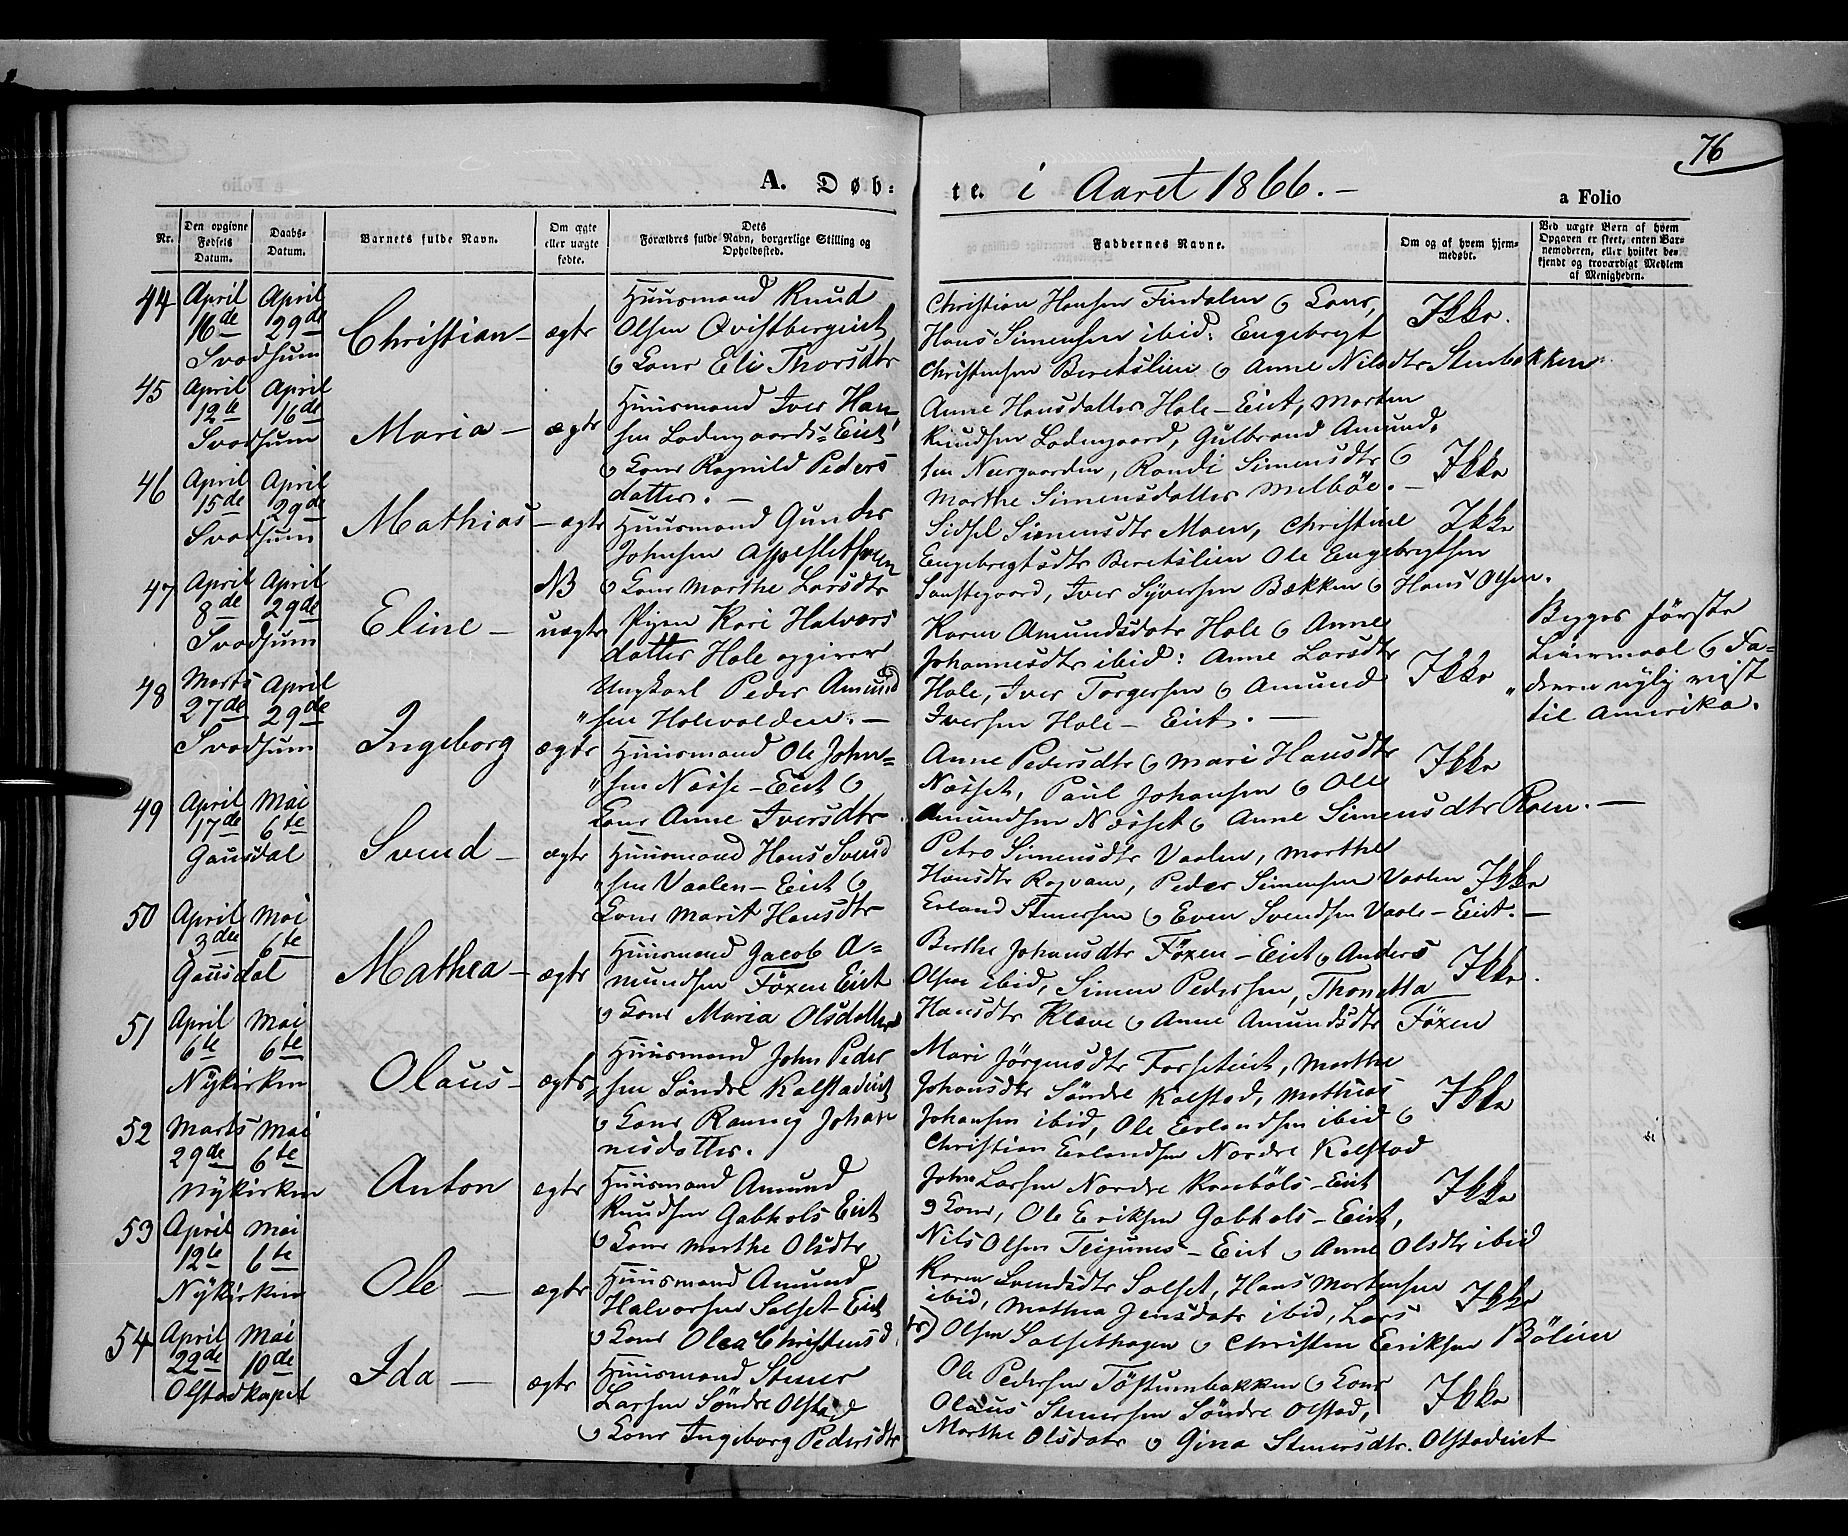 76
A. Døb-
te. i Aaret 1866.-
a Folio
Nr.
Den opgivne Fødsels Datum.
Daabs-Datum.
Barnets fulde Navn.
Om ægte eller uægte fødte.
Dets Forældres fulde Navn, borgerlige Stilling og Opholdssted.
Faddernes Navne.
Om og af hvem hjemmedøbt.
Ved uægte Børn af hvem Opgaven er skeet, enten Barnemoderen, eller hvilket bekjendt og troværdigt Medlem af Menigheden.
44 April 16de April 29de Svodsum
Christian - ægte
Huusmand Knud
Olsen Qvistbergeiet
& Kone Eli Thorsdtr
Christian Hansen Findalen & Kone,
Hans Simensen ibid: Engebregt
Christensen Beretslien & Anne Nilsdtr Stenbakken
Ikke.
45 April 12te April 16de Svodsum
Maria - ægte
Huusmand Iver Han-
sen Lodengaards-Eiet
& Kone Ragnild Peders
datter. -
Anne Hansdatter Hole-Eiet, Morten
Knudsen Lodengaard, Gulbrand Amund-
sen Neergaarden, Randi Simensdtr &
Marthe Simensdatter Melbøe. -
Ikke
46 April 15de April 29de Svodsum
Mathias - ægte
Huusmand Gunder
Johnsen
& Kone Marthe Larsdtr
Sidsel Simensdtr Moen, Christine
Engebregtsdtr Beretslien Ole Engebregtsen
Sanstegaard, Iver Syversen Bækken & Hans Olsen.
Ikke
47 April 8de April 29de Svodsum
Eline - NB uægte
Pigen Kari Halvors
datter Hole opgiver
Ungkarl Peder Amund
"sen Holevolden. -
Karen Amundsdatr Hole & Anne
Johannesdtr ibid: Anne Larsdtr
Hole, Iver Torgersen & Amund
Iversen Hole-Eiet. -
Ikke
Begges første
Leiermaal & Fa-
deren nylig reist
til Amerika.
48 Marts 27de April 29de Svodsum
Ingeborg ægte
Huusmand Ole John-
"sen Næsse-Eiet &
Kone Anne Iversdtr
Anne Pedersdtr & Mari Hansdtr
Næsset, Paul Johansen & Ole
Amundsen Næsset & Anne Simensdtr Roen. -
Ikke
49 April 17de Mai 6te Gausdal
Svend - ægte
Huusmand Hans Svend
"sen Vaalen-Eiet &
Kone Marit Hansdtr
Petro Simensdtr Vaalen, Marthe
Hansdtr Rogvam, Peder Simensen Vaalen
Erland Steenersen & Even Svendsen Vaale-Eiet. -
Ikke
50 April 3die Mai 6te Gausdal
Mathea - ægte
Huusmand Jacob A-
mundsen Føxen Eiet
& Kone Maria Olsdatter
Berthe Johansdtr Føxen-Eiet & Anders
Olsen ibid, Simen Pedersen, Thonetta
Hansdtr Kleve & Anne Amundsdtr Føxen
Ikke.
51 April 6te Mai 6te Nykirken
Olaus - ægte
Huusmand John Peder
"sen Søndre Kalstadeiet
& Kone Ranney Johan
nesdatter.
Mari Jørgensdtr Forseteiet, Marthe
Johansdtr Søndre Kalstad, Mathias
Johansen ibid, Ole Erlandsen ibid &
Christian Erlandsen Nordre Kalstad
Ikke
52 Marts 29de Mai 6te Nykirken
Anton ægte
Huusmand Amund
Knudsen Gabhols Eiet
& Kone Marthe Olsdtr
John Larsen Nordre Rønbøls-Eiet
& Kone, Ole Eriksen Gabhols-Eiet,
Nils Olsen Teigumes-Eiet & Anne Olsdtr ibid
Ikke
53 April 12te Mai 6te Nykirken
Ole - ægte
Huusmand Amund
Halvorsen Solset-Eiet
& Kone Olea Christensd
tr)
Karen Svendsdtr Solset, Hans Mortensen
ibid, Mathea Jensdatr ibid, Lars
Olsen Solsethagen & Christen Eriksen Bølien
Ikke
54 April 22de Mai 10de Olstadkapel
Ida - ægte
Huusmand Stener
Larsen Søndre Olstad
& Kone Ingeborg Pedersdtr
Ole Pedersen Tøstumbakken & Kone
Olaus Stenersen Søndre Olstad,
Marthe Olsdatr & Gina Stenersdtr. Olstadeiet
Ikke